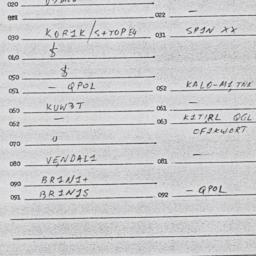 020
021 022 —
030 KOR1K/S+TOPE4 031 SP1N XX
040 $
050 $
051 — QPOL 052 KALO-M1TNK
060 KUW3T 061 —
062 — 063 K1TIRL QGL
OF1KWORT
070 U
080 VENDAL1 081 —
090 BR1N1+
091 BR1N1S 092 — QPOL